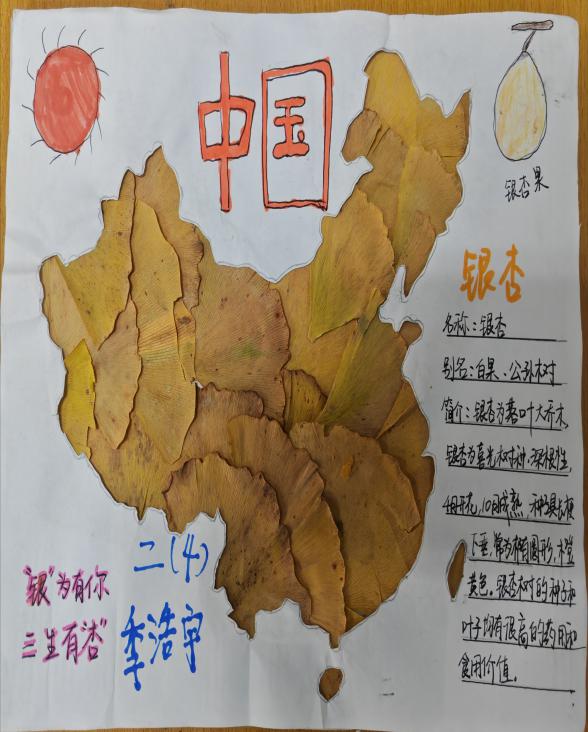 中国
银杏果
银杏
名称：银杏
别名：白果、公孙树
简介：银杏为落叶大乔木
银杏为喜光树种，深根性，
4月开花，10月成熟，种具长梗
下垂，常为椭圆形，橙
黄色，银杏树的种子和
叶子均有很高的药用和
食用价值。
二(4)
李浩宇
"银"为有你
三生有"杏"